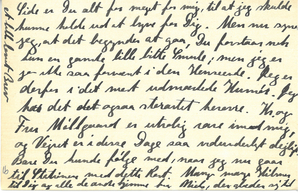 Side er Du alt for meget for mig, til at jeg skulde
kunne holde ud at lyve for Dig. Men nu synes
jeg, at det begynder at gaa, Du forstaar nok
kun en ganske lille bitte Smule, men jeg er
jo ikke saa forvent i den Henseende. Jeg er
derfor i det mest udmærkede Humør. Jeg
har det det ogsaa storartet herovre. Knog
Frue Møllgaard er utrolig rare imod mig,
og Vejret er i disse Dage saa vidunderligt dejligt
Bare Du kunde følge med, naar jeg nu gaar
til Stationen med dette Kort. Mange mange Hilsner
til Dig og alle de andre hjemme fra